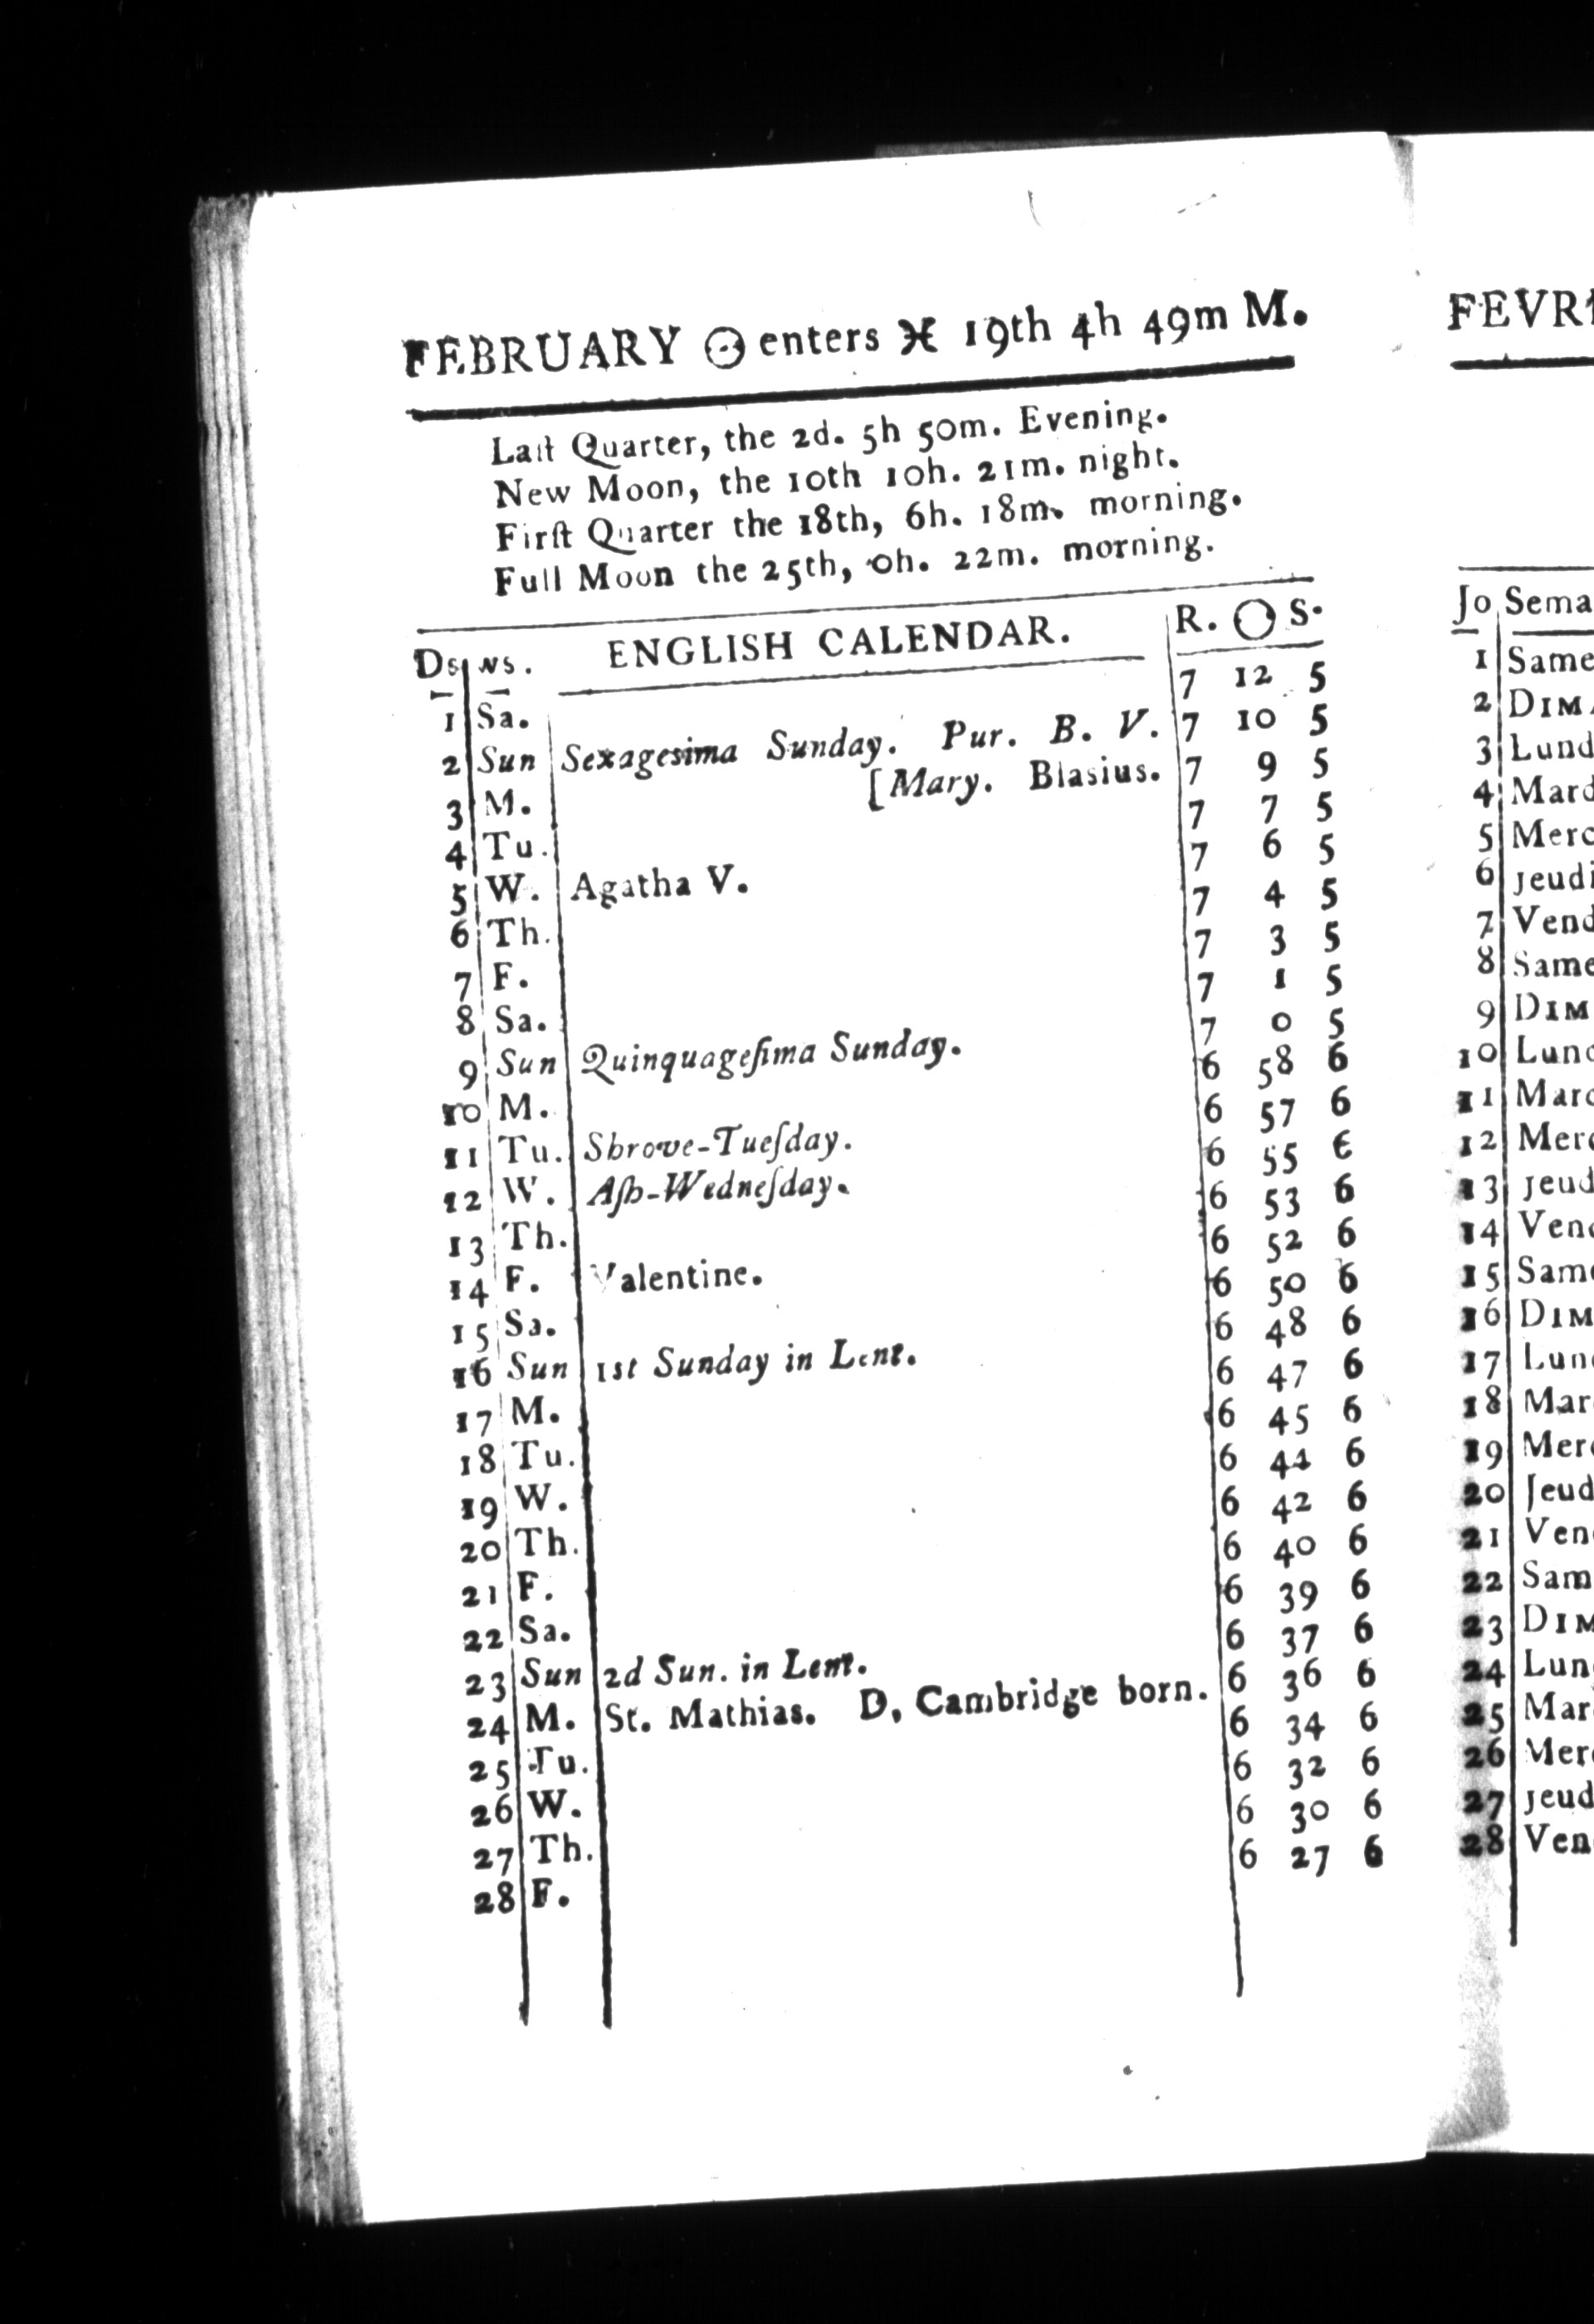 FEBRUARY ☉ enters ♓ 19th 4h 49m M.
Laſt Quarter, the 2d. 5h 50m. Evening.
New Moon, the 10th 10h. 21m. night.
Firſt Quarter the 18th, 6h. 18m. morning.
Full Moon the 25th, 0h. 22m. morning.
Ds ws. ENGLISH CALENDAR. R. ◯ S.
1 Sa. 7 12 5
2 Sun Sexagesima Sunday. Pur. B. V. 7 10 5
3 M. [Mary. Blasius. 7 9 5
4 Tu. 7 7 5
5 W. Agatha V. 7 6 5
6 Th. 7 4 5
7 F. 7 3 5
8 Sa. 7 1 5
9 Sun Quinquageſima Sunday. 7 0 5
10 M. 6 58 6
11 Tu. Shrove-Tueſday. 6 57 6
12 W. Aſh-Wedneſday. 6 55 6
13 Th. 6 53 6
14 F. Valentine. 6 52 6
15 Sa. 6 50 6
16 Sun 1st Sunday in Lent. 6 48 6
17 M. 6 47 6
18 Tu. 6 45 6
19 W. 6 44 6
20 Th. 6 42 6
21 F. 6 40 6
22 Sa. 6 39 6
23 Sun 2d Sun. in Lent. 6 37 6
24 M. St. Mathias. D, Cambridge born. 6 36 6
25 Tu. 6 34 6
26 W. 6 32 6
27 Th. 6 30 6
28 F. 6 27 6
FEVR
Jo Sema
1 Same
2 DIM
3 Lund
4 Mard
5 Merc
6 jeudi
7 Vend
8 Same
9 DIM
10 Lund
11 Marc
12 Merc
13 jeud
14 Vend
15 Same
16 DIM
17 Lun
18 Mar
19 Mer
20 Jeud
21 Ven
22 Sam
23 DIM
24 Lun
25 Mar
26 Mer
27 jeud
28 Ven